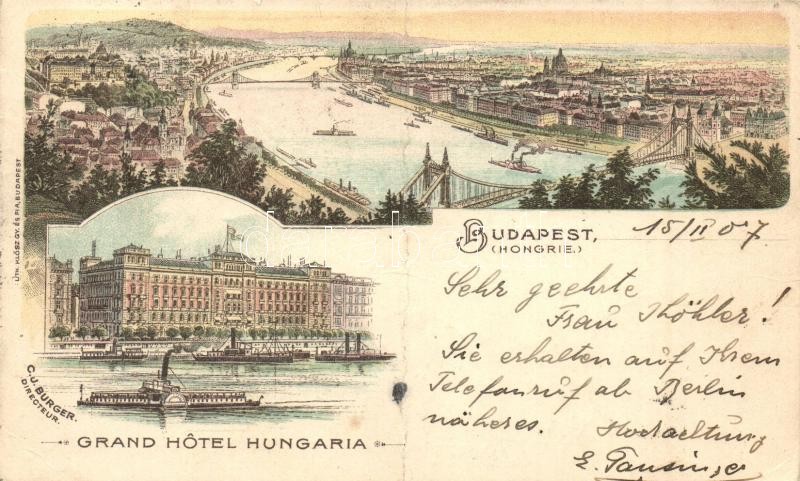 LITH. KLÓSZ GY. ÉS FIA, BUDAPEST
BUDAPEST, 15/II 07
(HONGRIE.)
Sehr geehrte
Frau Köhler!
Sie erhalten auf Ihrem
Telefonruf ab Berlin
näheres.
Hochachtung
E.
C. J. BURGER.
DIRECTEUR.
GRAND HÔTEL HUNGARIA